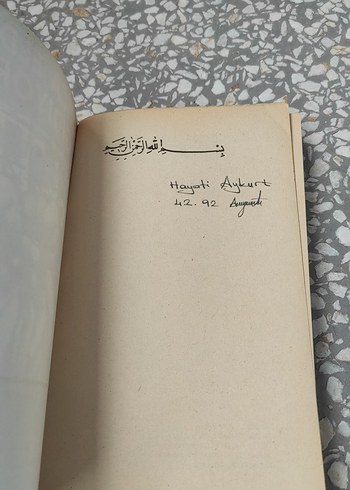 بسم الله الرحمن الرحيم
Hayati Aykurt
42.92